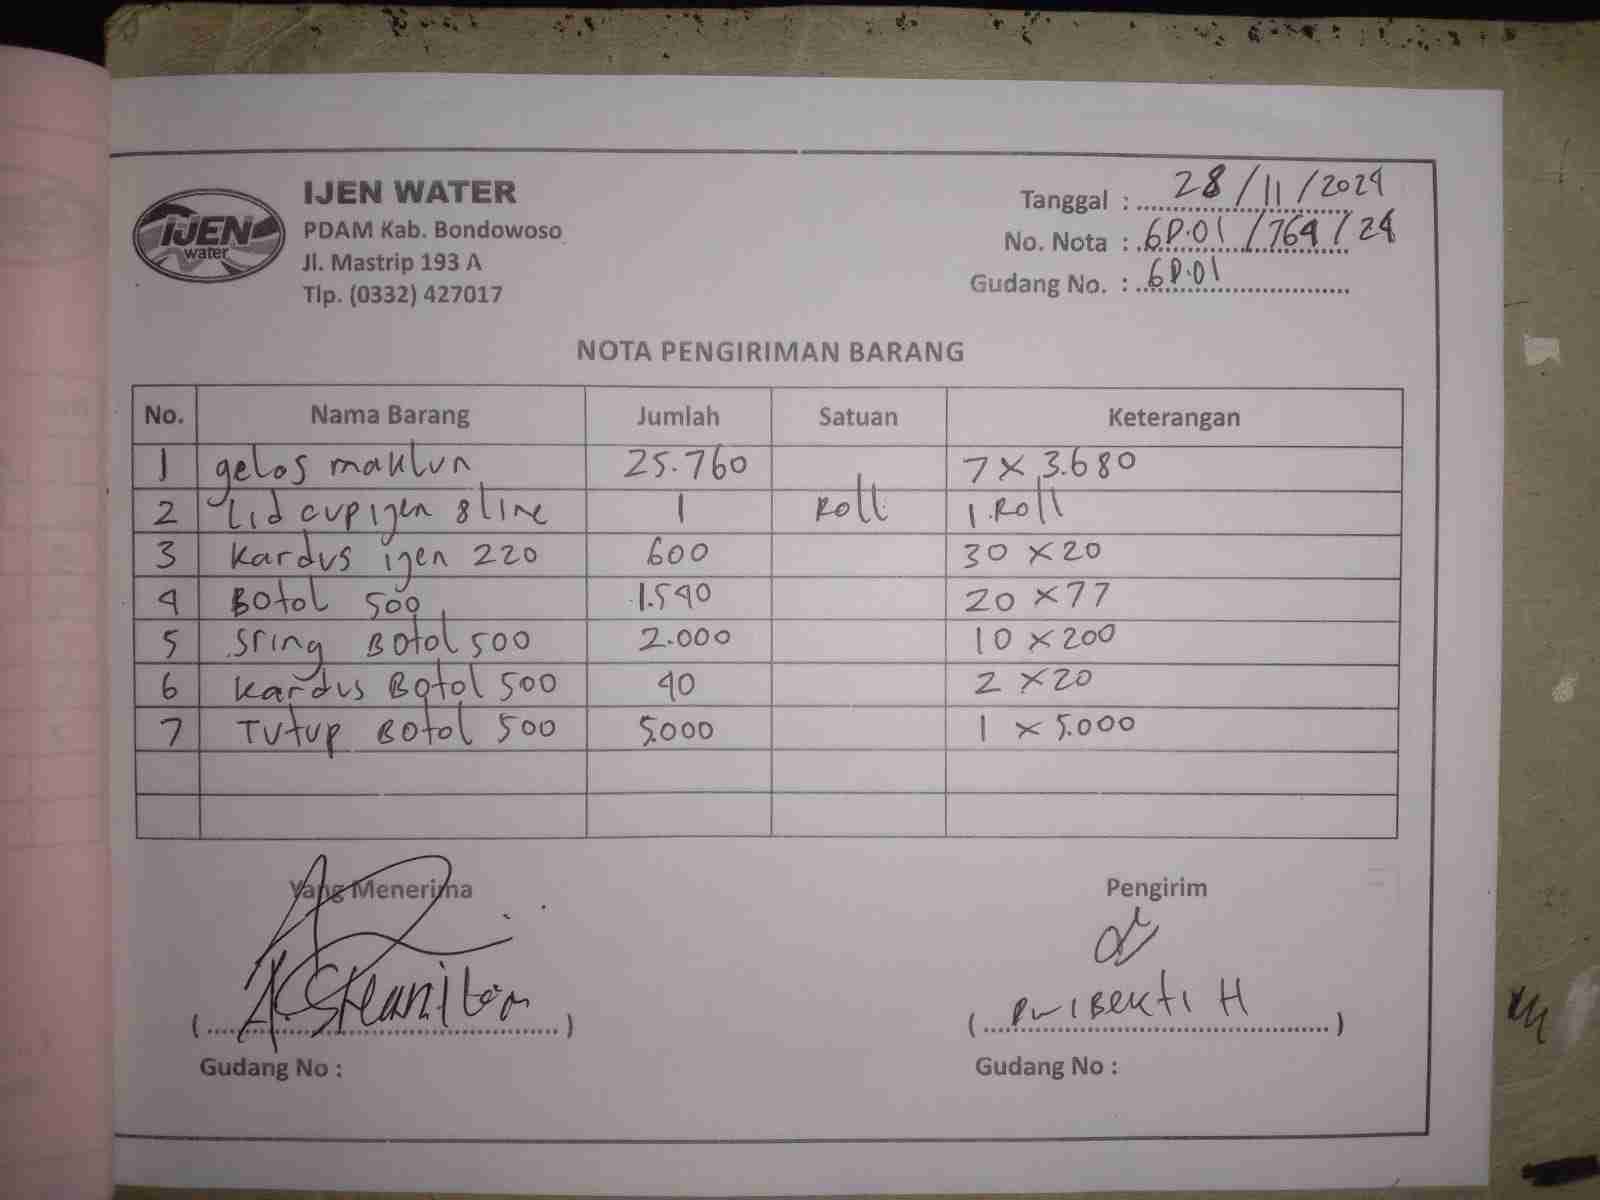 IJEN WATER
PDAM Kab. Bondowoso
Jl. Mastrip 193 A
Tlp. (0332) 427017
IJEN
water
Tanggal : 28/11/2024
No. Nota : GD.01/764/24
Gudang No. : GD.01
NOTA PENGIRIMAN BARANG
No. Nama Barang Jumlah Satuan Keterangan
1 gelas maklun 25.760 7 x 3.680
2 Lid cup ijen 8 line 1 Roll 1 Roll
3 Kardus ijen 220 600 30 x 20
4 Botol 500 1.540 20 x 77
5 Sring Botol 500 2.000 10 x 200
6 Kardus Botol 500 40 2 x 20
7 Tutup Botol 500 5.000 1 x 5.000
Yang Menerima
Pengirim
( )
( Dwi Bekti H )
Gudang No :
Gudang No :